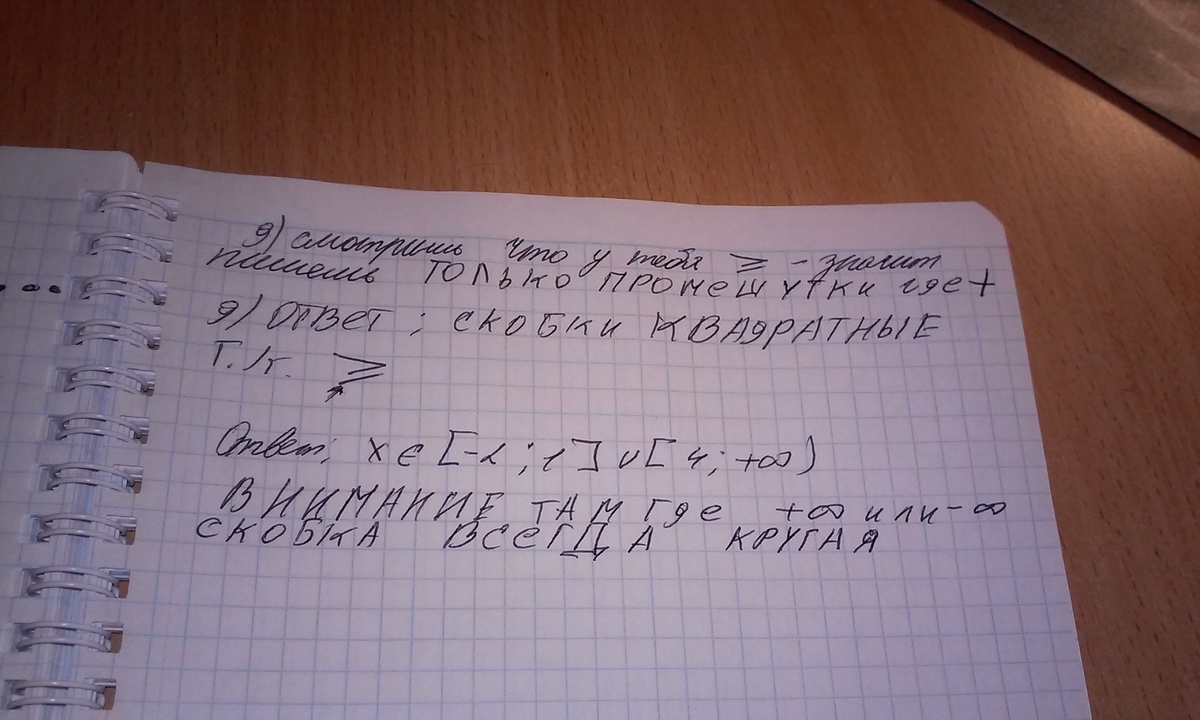 g) смотришь что у тебя ≥ - значит
пишешь ТОЛЬКО ПРОМЕШУТКИ где +
g) ОТВЕТ ; СКОБКИ КВАДРАТНЫЕ
Т.к. ≥
Ответ; x ∈ [-2 ; 1] ∪ [4; +∞)
ВНИМАНИЕ ТАМ где +∞ или -∞
СКОБКА ВСЕГДА КРУГЛАЯ